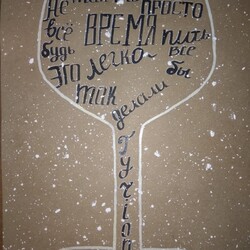 Не просто
всё ВРЕМЯ пить
будь ЭТО легко- все
так делали бы